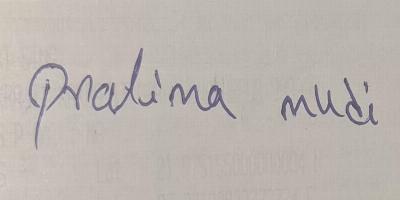 Pratima mudi